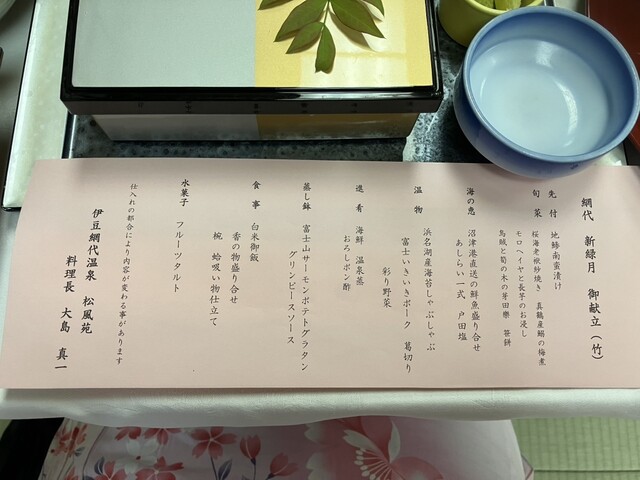 網代 新緑月 御献立(竹)
先付 地鯵南蛮漬け
旬菜 桜海老袱紗焼き 真鶴産鰯の梅煮
モロヘイヤと長芋のお浸し
烏賊と筍の木の芽田樂 笹餅
海の恵 沼津港直送の鮮魚盛り合せ
あしらい一式 戸田塩
温物 浜名湖産海苔しゃぶしゃぶ
富士いきいきポーク 葛切り
彩り野菜
進肴 海鮮 温泉蒸
おろしポン酢
蒸し鉢 富士山サーモンポテトグラタン
グリンピースソース
食事 白米御飯
香の物盛り合せ
椀 蛤吸い物仕立て
水菓子 フルーツタルト
仕入れの都合により内容が変わる事があります
伊豆網代温泉 松風苑
料理長 大島 真一